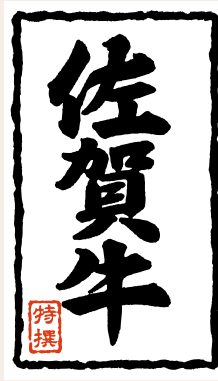 佐賀牛
特撰